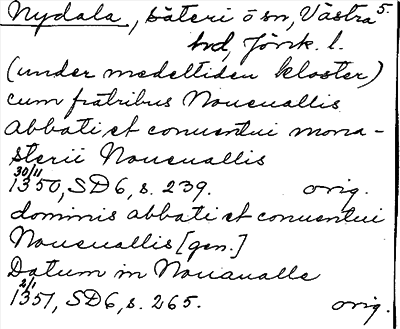 Nydala, säteri ö sn, Västra 5.
hd, Jönk. l.
(under medeltiden kloster)
cum fratribus Noueuallis
abbati et conuentui mona-
sterii Noueuallis
30/11
1350, SD6, s. 239. orig.
dominis abbati et conuentui
Noueuallis [gen.]
Datum in Nouaualle
2/1
1351, SD6, s. 265. orig.